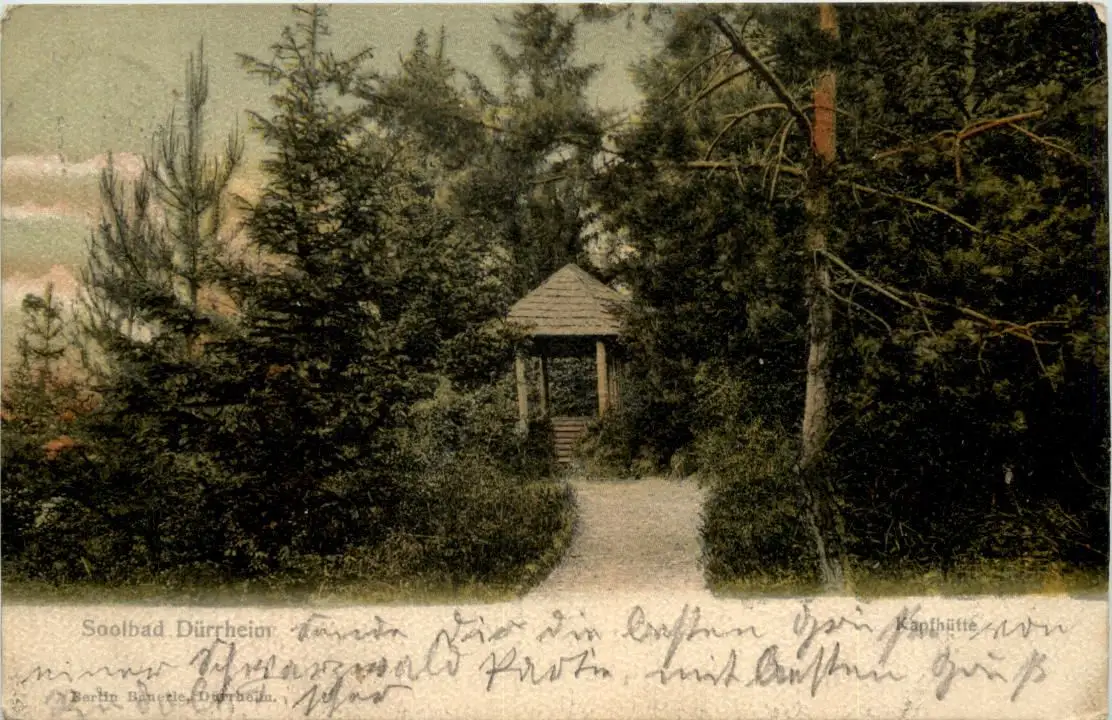 Soolbad Dürrheim Kapfhütte
Sende Dir die besten Grüße von
einer Schwarzwald Partie, mit besten Gruß
Bertin Bäuerle, Dürrheim.